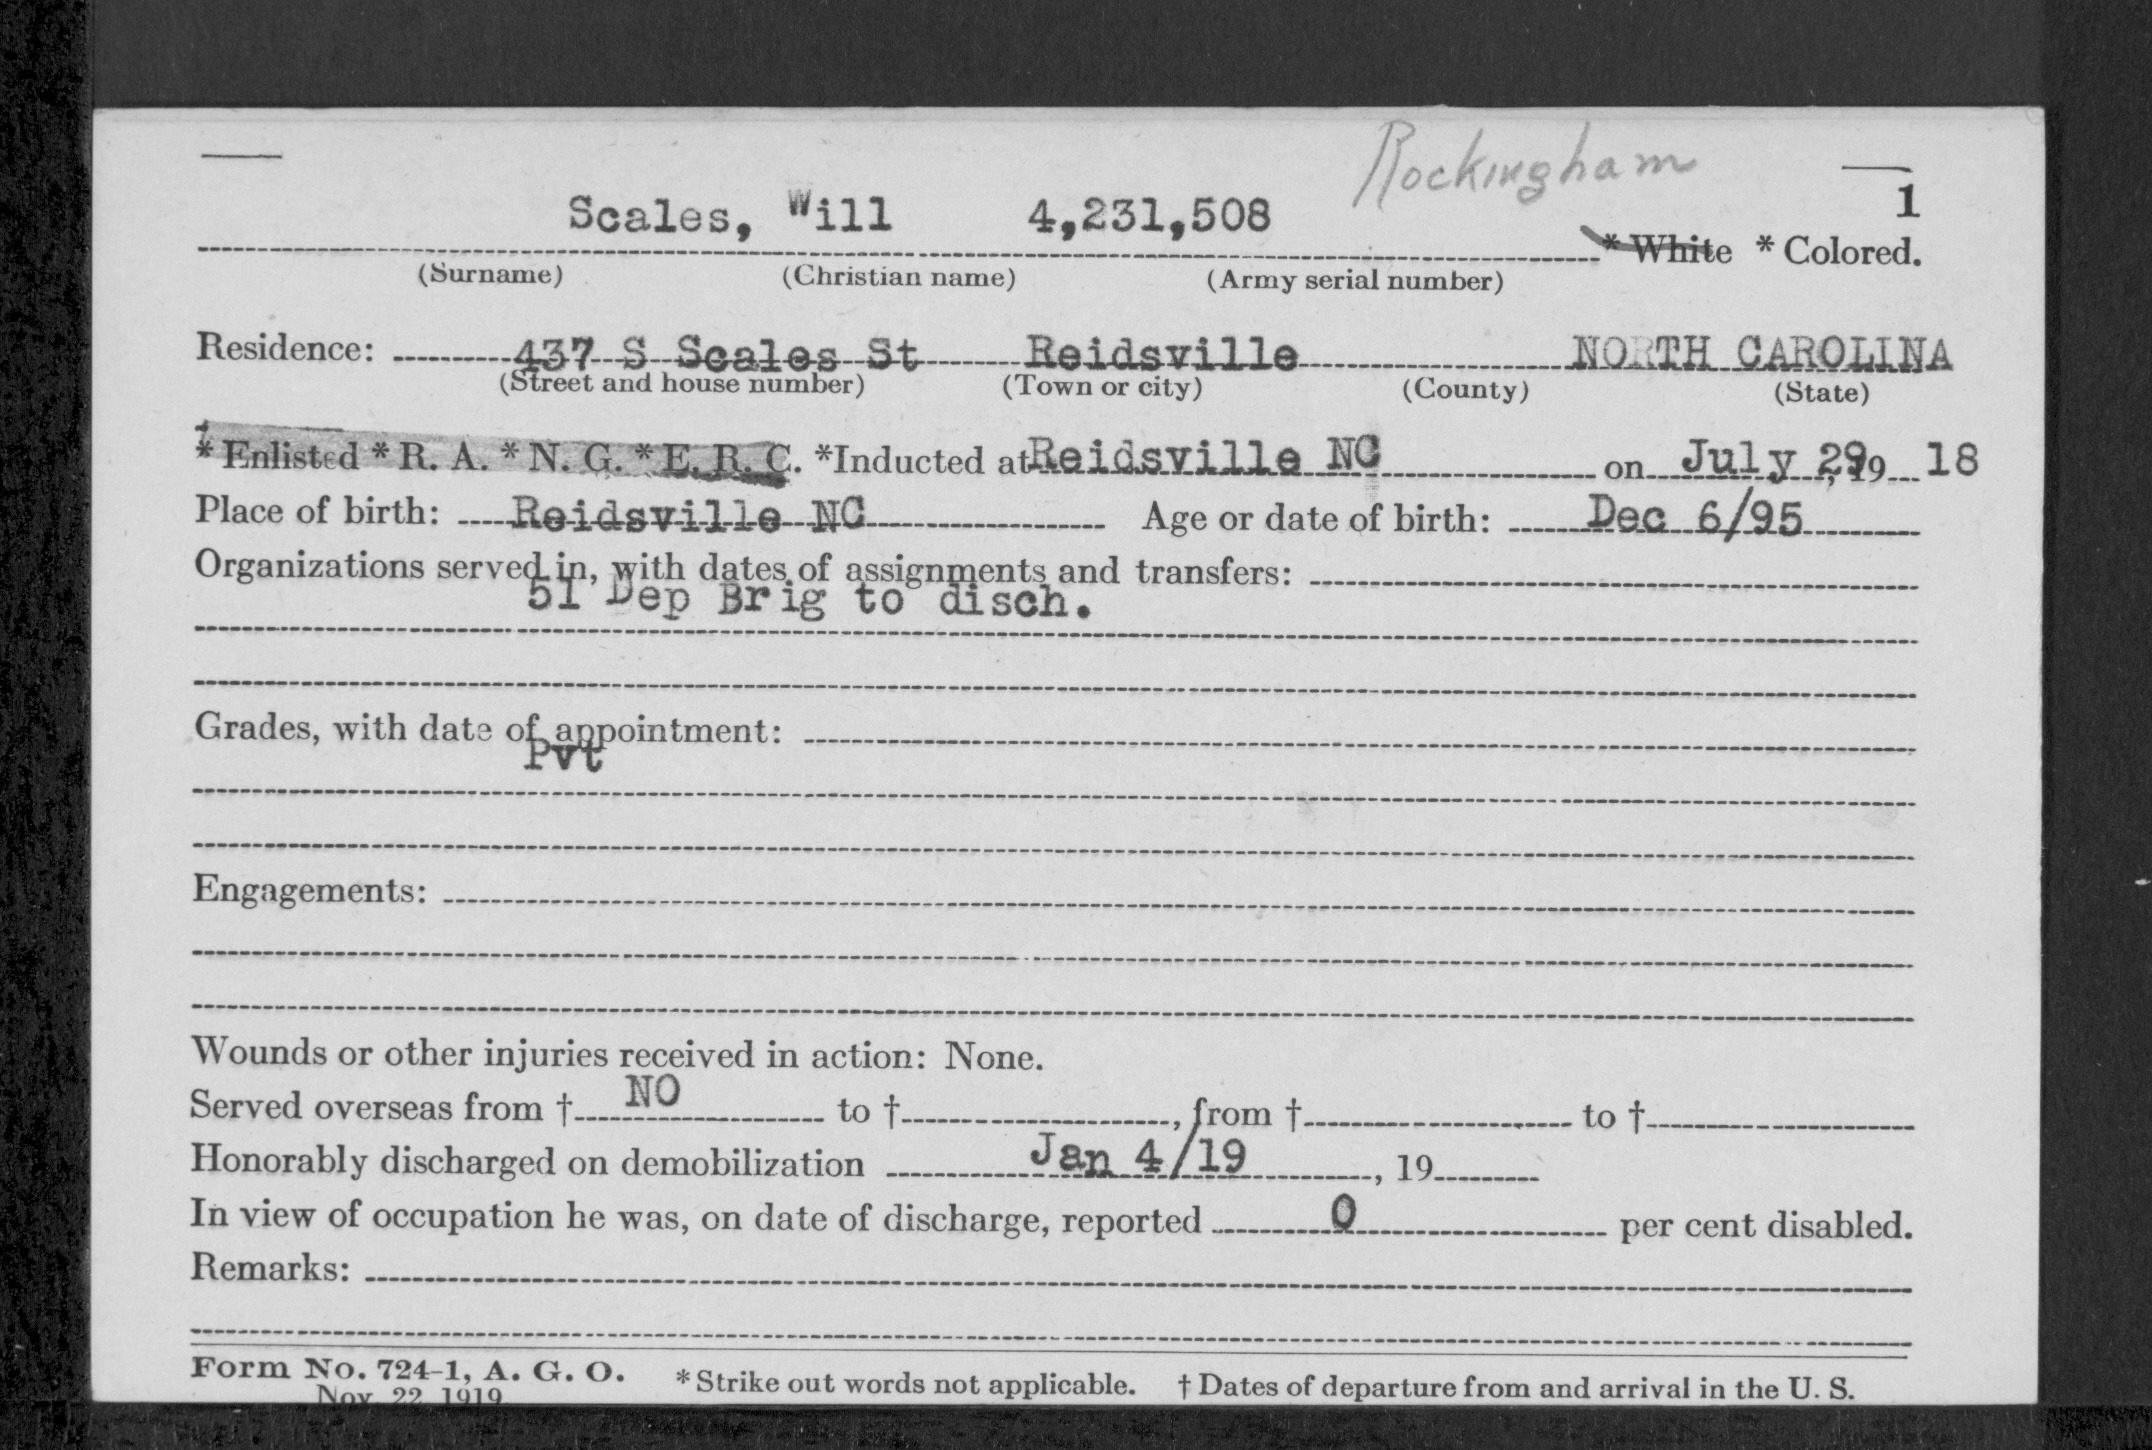 Rockingham
1
Scales, Will 4,231,508 * White * Colored.
(Surname) (Christian name) (Army serial number)
Residence: 437 S Scales St Reidsville NORTH CAROLINA
(Street and house number) (Town or city) (County) (State)
* Enlisted * R. A. * N. G. * E. R. C. *Inducted at Reidsville NC on July 29, 19 18
Place of birth: Reidsville NC Age or date of birth: Dec 6/95
Organizations served in, with dates of assignments and transfers:
51 Dep Brig to disch.
Grades, with date of appointment:
Pvt
Engagements:
Wounds or other injuries received in action: None.
Served overseas from † NO to † , from † to †
Honorably discharged on demobilization Jan 4/19 , 19
In view of occupation he was, on date of discharge, reported 0 per cent disabled.
Remarks:
Form No. 724-1, A. G. O. * Strike out words not applicable. † Dates of departure from and arrival in the U. S.
Nov. 22, 1919